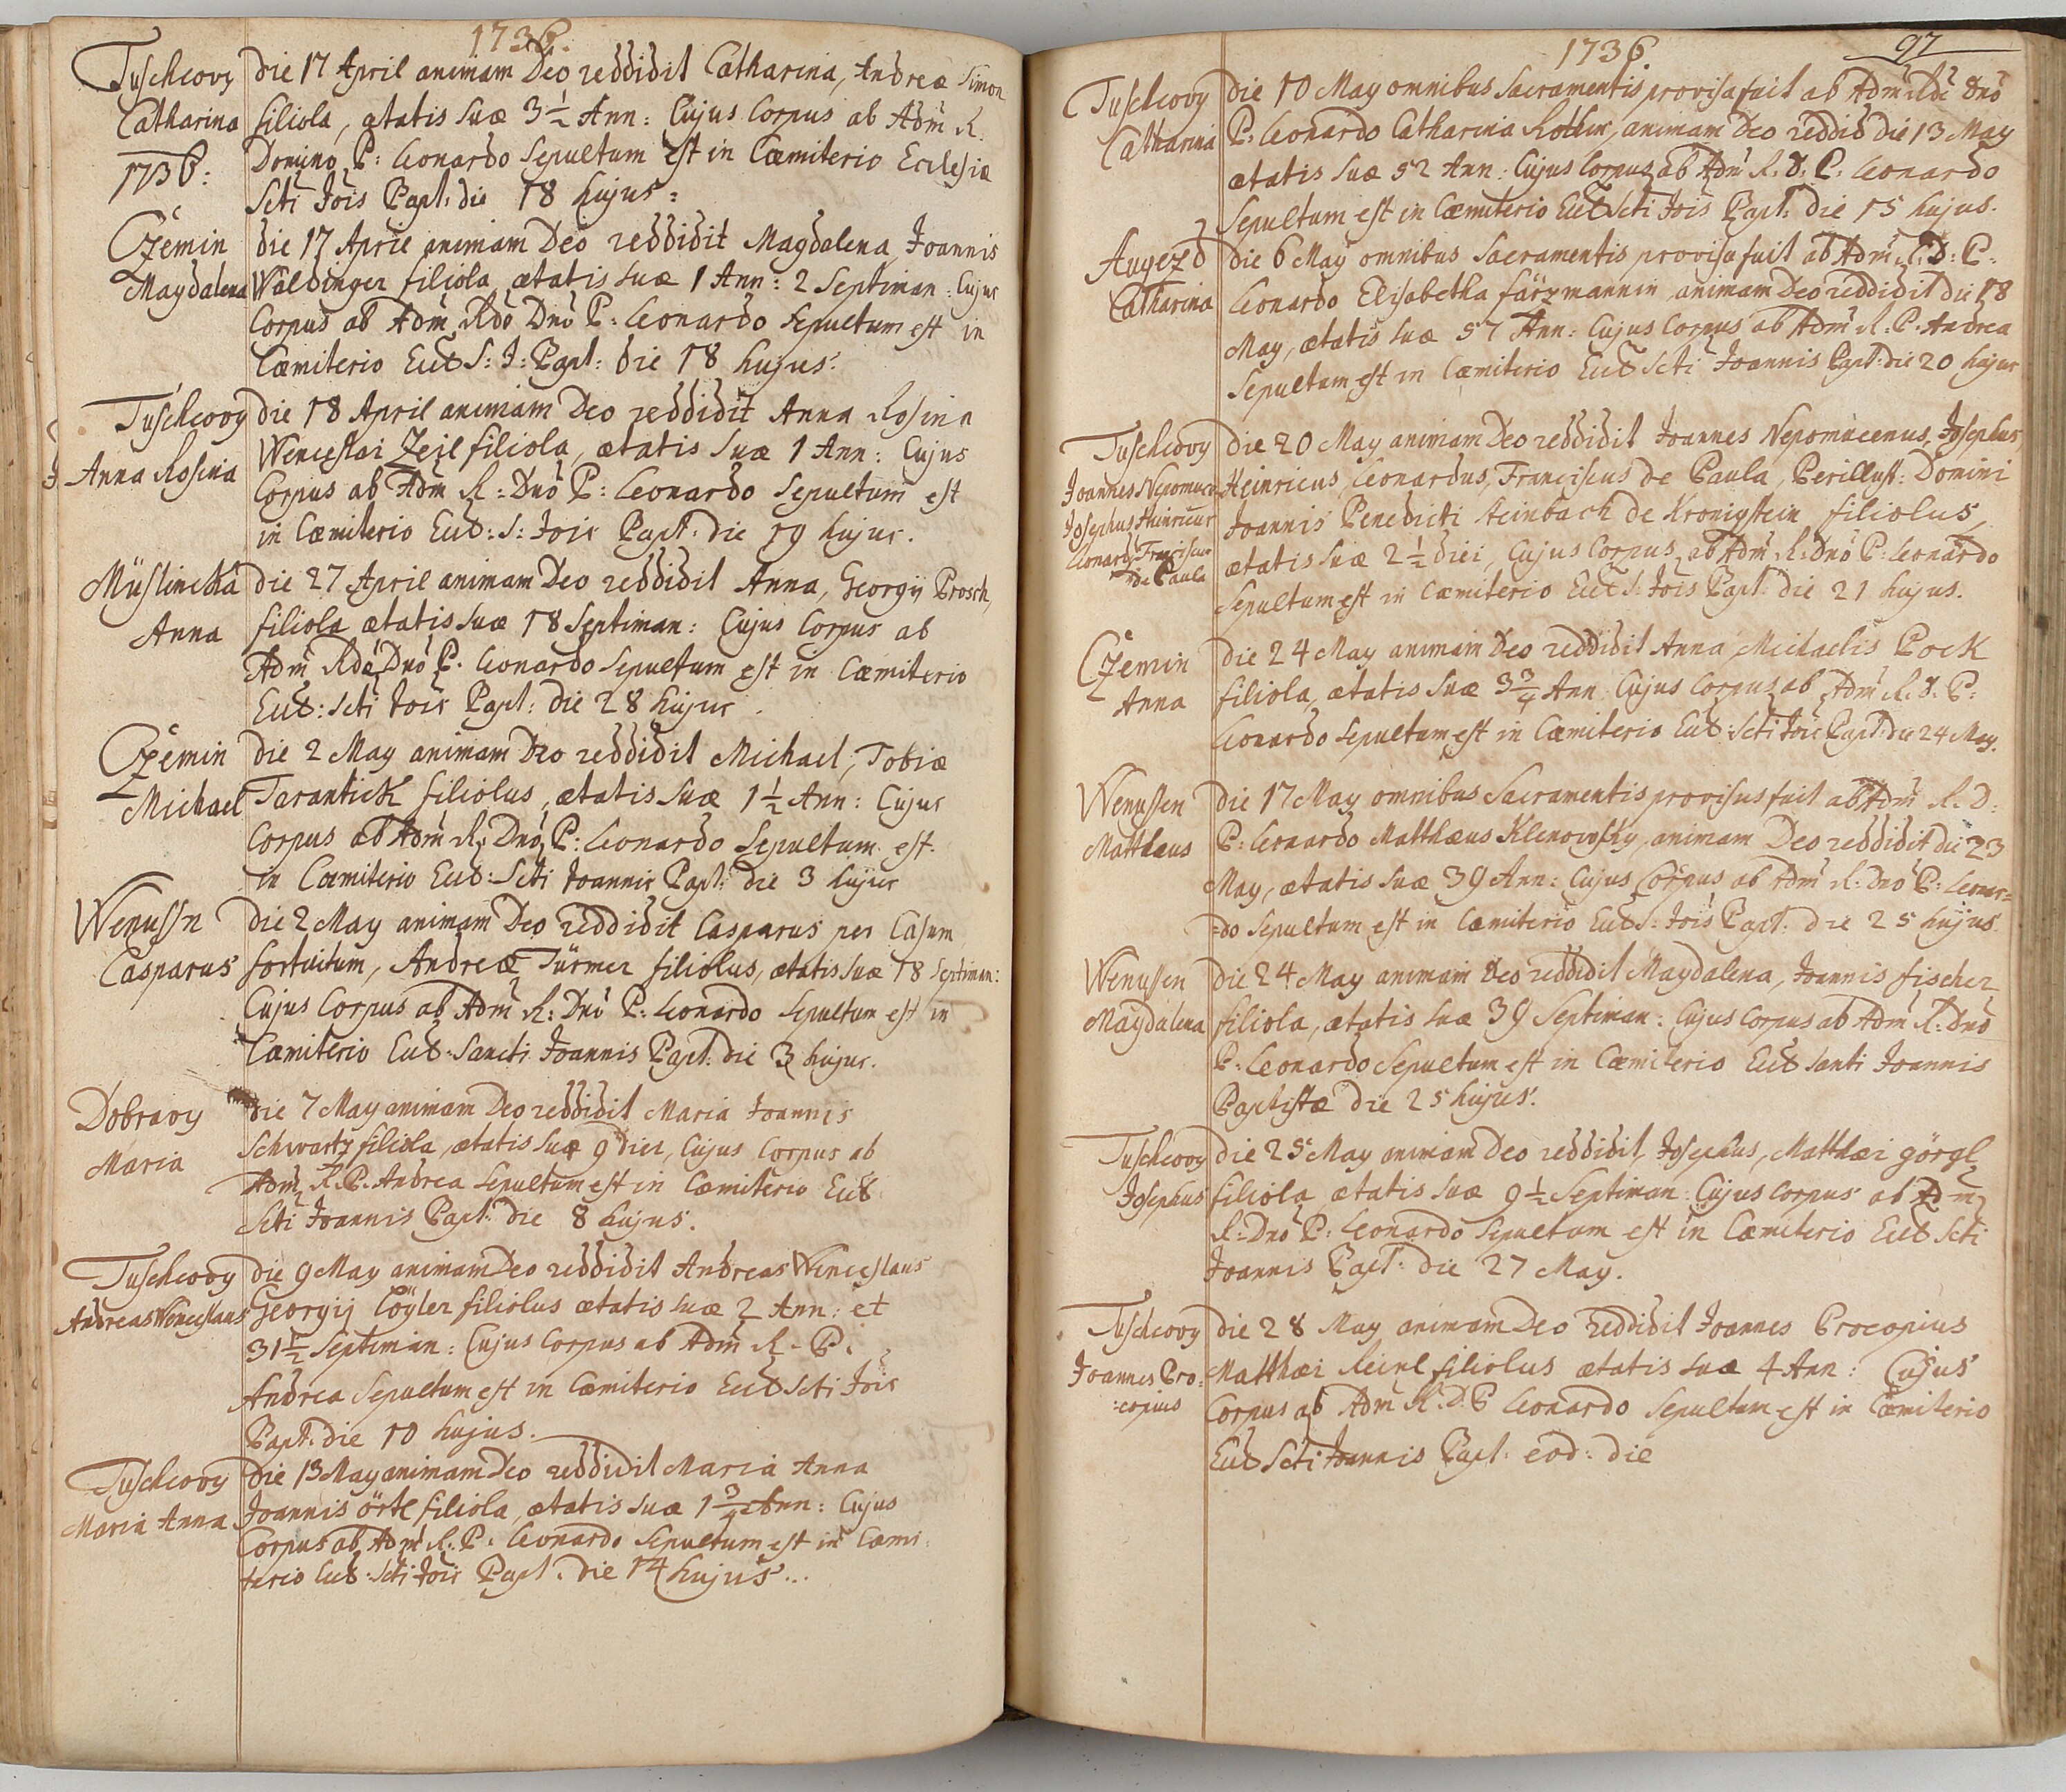 1736.
Tuschcovy die 17 April animam Deo reddidit Catharina, Andreæ Simon
Catharina filiola, ætatis suæ 3½ Ann: Cujus Corpus ab Adm R.
1736: Domino P: Leonardo Sepultum est in Cæmiterio Ecclesiæ
Scti Jois Bapt: die 18 hujus:
Czemin die 17 April animam Deo reddidit Magdalena, Joannis
Magdalena Waldinger filiola ætatis suæ 1 Ann: 2 Septiman: Cujus
Corpus ab Adm Rdo Dno P: Leonardo Sepultum est in
Cæmiterio Eccl S: J: Bapt: die 18 hujus.
Tuschcovy die 18 April animam Deo reddidit Anna Rosina
Anna Rosina Wenceslai Zeil filiola, ætatis suæ 1 Ann: Cujus
Corpus ab Adm R: Dno P: Leonardo Sepultum est
in Cæmiterio Eccl: S: Jois Bapt: die 19 hujus.
Müslincka die 27 April animam Deo reddidit Anna, Georgij Prosch,
Anna filiola ætatis suæ 18 Septiman: Cujus Corpus ab
Adm Rdo Dno P. Leonardo Sepultum est in Cæmiterio
Eccl: Scti Jois Bapt: die 28 hujus.
Czemin die 2 May animam Deo reddidit Michael, Tobiæ
Michael Tarantick filiolus, ætatis suæ 1½ Ann: Cujus
Corpus ab Adm R: Dno P: Leonardo Sepultum est
in Cæmiterio Eccl: Scti Joannis Bapt: die 3 hujus
Wenussn die 2 May animam Deo reddidit Casparus per Casum
Casparus fortuitum, Andreæ Türmer filiolus, ætatis suæ 18 Septiman:
Cujus Corpus ab Adm R: Dno P: Leonardo Sepultum est in
Cæmiterio Eccl: Sancti Joannis Bapt: die 3 hujus.
Dobravy die 7 May animam Deo reddidit Maria Joannis
Maria Schwartz filiola, ætatis suæ 9 diei, Cujus Corpus ab
Adm R. P. Andrea Sepultum est in Cæmiterio Eccl
Scti Joannis Bapt: die 8 hujus.
Tuschcovy die 9 May animam Deo reddidit Andreas Wenceslaus
Andreas Wenceslaus Georgij Cögler filiolus ætatis suæ 2 Ann: et
31½ Septiman: Cujus Corpus ab Adm R. P.
Andrea Sepultum est in Cæmiterio Eccl Scti Jois
Bapt: die 10 hujus.
Tuschcovy die 13 May animam Deo reddidit Maria Anna
Maria Anna Joannis örtl filiola, ætatis suæ 1¾ Ann: Cujus
Corpus ab Adm R. P. Leonardo Sepultum est in Cæmi:
terio Eccl: Scti Jois Bapt: die 14 hujus...
1736. 97
Tuschcovy die 10 May omnibus Sacramentis provisa fuit ab Adm Rdo Dno
Catharina P: Leonardo Catharina Rothin, animam Deo reddid die 13 May
ætatis suæ 52 Ann: Cujus Corpus ab Adm R. D: P: Leonardo
Sepultum est in Cæmiterio Eccl Scti Jois Bapt: die 15 hujus.
Augezd die 6 May omnibus Sacramentis provisa fuit ab Adm R. D: P.
Catharina Leonardo Elisabetha färzmannin animam Deo reddidit die 18
May, ætatis suæ 57 Ann: Cujus Corpus ab Adm R: P. Andrea
Sepultum est in Cæmiterio Eccl Scti Joannis Bapt: die 20 hujus
Tuschcovy die 20 May animam Deo reddidit Joannes Nepomucenus, Josephus,
Joannes Nepomuce Heinricus, Leonardus, Franciscus de Paula, Perillust: Domini
Josephus Heinricus Joannis Benedicti Steinbach de Kronigstein filiolus,
Leonard Franciscus ætatis suæ 2½ diei, Cujus Corpus ab Adm R: Dno P: Leonardo
de Paula Sepultum est in Cæmiterio Eccl S: Jois Bapt: die 21 hujus.
Czemin die 24 May animam Deo reddidit Anna, Michaelis Pock
Anna filiola, ætatis suæ 3¾ Ann: Cujus Corpus ab Adm R. D. P:
Leonardo Sepultum est in Cæmiterio Eccl: Scti Jois Bapt: die 24 May.
Wenussen die 17 May omnibus Sacramentis provisus fuit ab Adm R. D:
Matthæus P: Leonardo Matthæus Klenowsky, animam Deo reddidit die 23
May, ætatis suæ 39 Ann: Cujus Corpus ab Adm R: Dno P: Leonar=
=do Sepultum est in Cæmiterio Eccl S: Jois Bapt: die 25 hujus.
Wenussen die 24 May animam Deo reddidit Magdalena, Joannis fischer
Magdalena filiola, ætatis suæ 39 Septiman: Cujus Corpus ab Adm R: Dno
P: Leonardo Sepultum est in Cæmiterio Eccl Santi Joannis
Baptistæ die 25 hujus.
Tuschcovy die 25 May animam Deo reddidit, Josephus, Matthæi görgl
Josephus filiola ætatis suæ 9½ Septiman: Cujus Corpus ab Adm
R: Dno P: Leonardo Sepultum est in Cæmiterio Eccl Scti
Joannis Bapt: die 27 May.
Tuschcovy die 28 May animam Deo reddidit Joannes Procopius
Joannes Pro: Matthæi Reinl filiolus ætatis suæ 4 Ann: Cujus
:copius Corpus ab Adm R. D. P Leonardo Sepultum est in Cæmiterio
Eccl Scti Joannis Bapt: eod: die